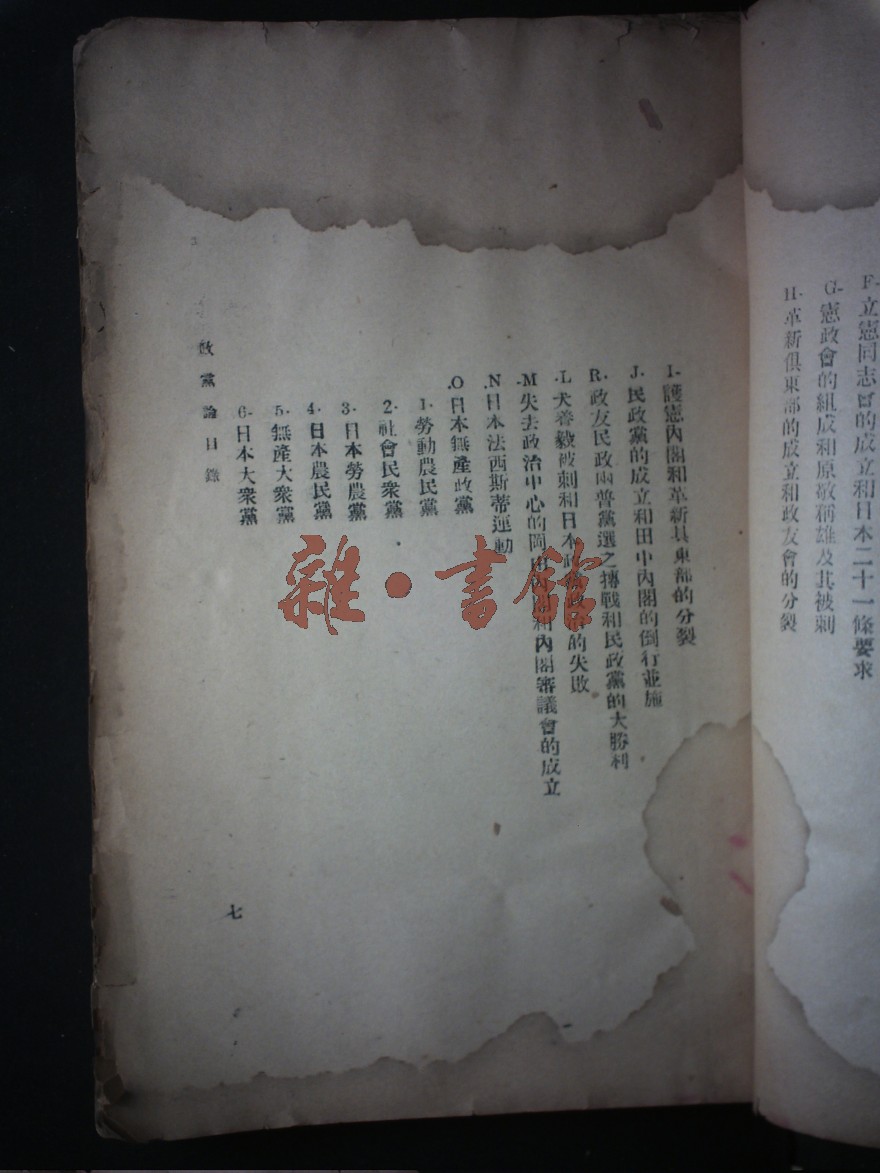 F. 立憲同志會的成立和日本二十一條要求
G. 憲政會的組成和原敬稱雄及其被刺
H. 革新俱東部的成立和政友會的分裂
I. 護憲內閣和革新具東部的分裂
J. 民政黨的成立和田中內閣的倒行並施
R. 政友民政兩普黨選之搏戰和民政黨的大勝利
.L 犬養毅被刺和日本政黨政治的失敗
.M 失去政治中心的岡田內閣和內閣審議會的成立
.N 日本法西斯蒂運動
.O 日本無產政黨
1. 勞動農民黨
2. 社會民衆黨
3. 日本勞農黨
4. 日本農民黨
5. 無產大衆黨
6. 日本大衆黨
政黨論目錄
七
雜·書館